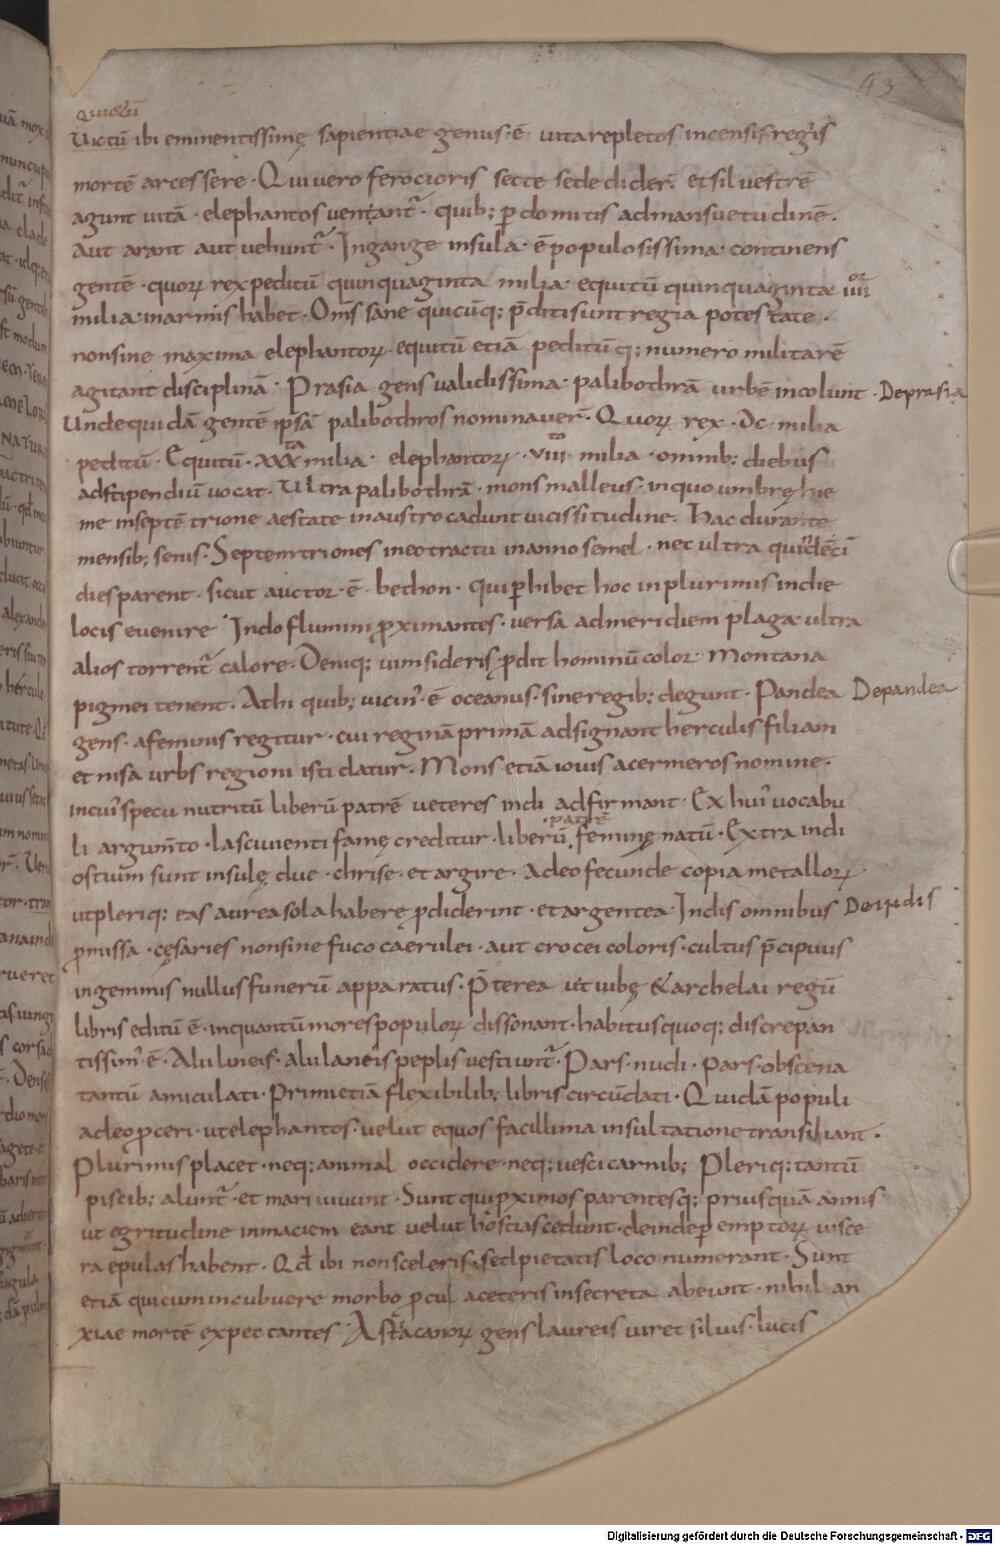 43
quietū
Uictū ibi eminentissimę sapientiae genus · ē · vita repletos incensis regris
mortē arcessere · Qui vero ferocioris secte se dedider̄ · et silvestrē
agunt vitā · elephantos venantr̄ · quib; p̱ domitis ad mansuetudinē ·
Aut arant aut vehuntr̄ · In gange insula · ē populosissima · continens
gentē · quorꝝ rex peditū quinquaginta milia · equitū quinquaginta iiiior
milia in armis habet · Om̄s sane quicūq; p̄diti sunt regia potestate ·
non sine maxima elephantorꝝ · equitū etiā peditūq; numero militarē
agitant disciplinā · Prasia gens validissima · palibothrā urbē incolunt · De prasia
Unde quidā gentē ipsā palibothros nominaver̄ · Quorꝝ rex · Dc · milia
peditū · Equitū · xxxta milia · elephantorꝝ · viiito milia · omnib; diebus
ad stipendiū vocat · Ultra palibothrā · mons malleus · in quo umbrę hie
me in septētrione aestate in austro cadunt vicissitudine · Hac durante
mensib; senis · Septemtriones in eo tractu in anno semel · nec ultra quīdeci
dies parent · sicut auctor · ē · bethon · qui p̱hibet hoc in plurimis indie
locis evenire · Indo flumini p̱ximantes · versa ad meridiem plaga ultra
alios torrentr̄ calore · Deniq; vim sideris p̱dit hominū color · Montana
pigmei tenent · At hi quib; vicin' · ē oceanus · sine regib; degunt · Pandea De pandea
gens · a feminis regitur · cui reginā primā adsignant herculis filiam
et nisa urbs regioni isti datur · Mons etiā iovis ac ermeros nomine ·
in cui' specu nutritū liberū patrē veteres indi adfirmant · Ex hui' vocabu
· patrē
li argum̄to · lascivienti famę creditur · liberū feminę natū · Extra indi
ostium sunt insulę due · chrise · et argire · Adeo fecunde copia metallorꝝ ·
ut pleriq; eas aurea sola haberę p̱diderint · et argentea Indis omnibus De indis
p̱missa · cęsaries non sine fuco caerulei · aut crocei coloris · cultus p̄cipuus
in gemmis nullus funerū apparatus · P̄terea ut iubę & archelai regū
libris editū ē · in quantū mores populorꝝ dissonant · habitus quoq; discrepan
tissim' · ē · Alii lineis · alii laneis peplis vestiuntr̄ · Pars · nudi · Pars · obscena
tantū amiculati · Primi etiā flexibilib; libris circūdati · Quidā populi
adeo p̱ceri · ut elephantos · velut equos facillima insultatione transiliant ·
Plurimis placet · neq; animal occidere · neq; vesci carnib; Pleriq; tantū
piscib; aluntr̄ · et mari vivunt · Sunt qui p̱ximos parentesq; prius quā annis
ut egritudine in maciem eant velut hostias cedunt · deinde p̱emptorꝝ visce
ra epulas habent · Qd̄ ibi non sceleris · sed pietatis loco numerant · Sunt
etiā qui cum incubuere morbo p̱cul a ceteris in secreta abeunt · nihil an
xiae mortē expectantes · Astacanorꝝ gens laureis viret silvis · lucis
Digitalisierung gefördert durch die Deutsche Forschungsgemeinschaft - DFG